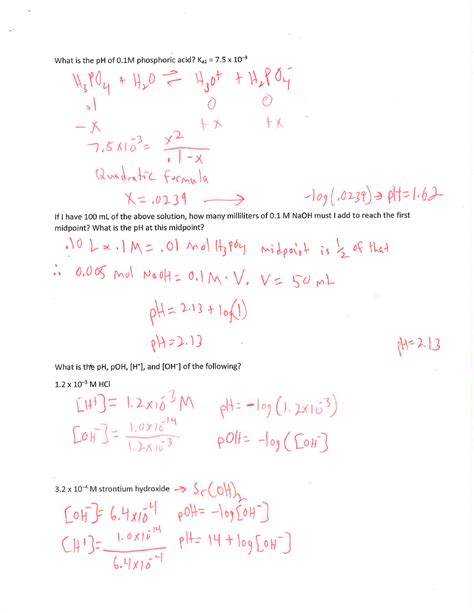 What is the pH of 0.1M phosphoric acid? Ka1 = 7.5 x 10⁻³
H₃PO₄ + H₂O ⇌ H₃O⁺ + H₂PO₄⁻
.1 0 0
-x +x +x
7.5x10⁻³ = x²/.1-x
Quadratic formula
X = .0239 → -log(.0239) → pH=1.62
If I have 100 mL of the above solution, how many milliliters of 0.1 M NaOH must I add to reach the first
midpoint? What is the pH at this midpoint?
.10 L x .1 M = .01 mol H₃PO₄ midpoint is ½ of that
∴ 0.005 mol NaOH = 0.1M · V. V = 50 mL
pH = 2.13 + log(1)
pH = 2.13 pH = 2.13
What is the pH, pOH, [H⁺], and [OH⁻] of the following?
1.2 x 10⁻³ M HCl
[H⁺] = 1.2x10⁻³ M pH = -log(1.2x10⁻³)
[OH⁻] = 1.0x10⁻¹⁴/1.2x10⁻³ pOH = -log([OH⁻]
3.2 x 10⁻⁴ M strontium hydroxide → Sr(OH)₂
[OH⁻] = 6.4x10⁻⁴ pOH = -log[OH⁻]
[H⁺] = 1.0x10⁻¹⁴/6.4x10⁻⁴ pH = 14 + log[OH⁻]